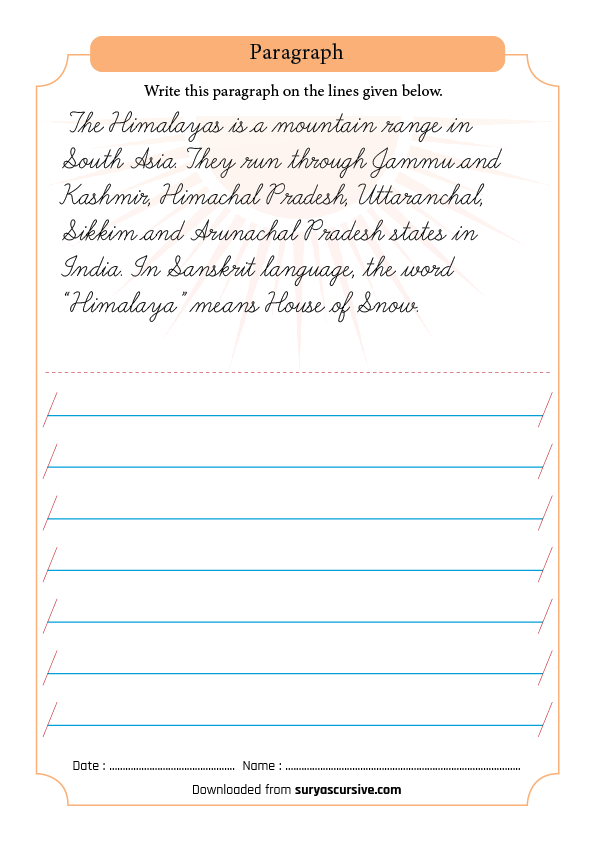 Paragraph
Write this paragraph on the lines given below.
The Himalayas is a mountain range in
South Asia. They run through Jammu and
Kashmir, Himachal Pradesh, Uttaranchal,
Sikkim and Arunachal Pradesh states in
India. In Sanskrit language, the word
“Himalaya” means House of Snow.
Date : ............................................... Name : ........................................................................................
Downloaded from suryascursive.com